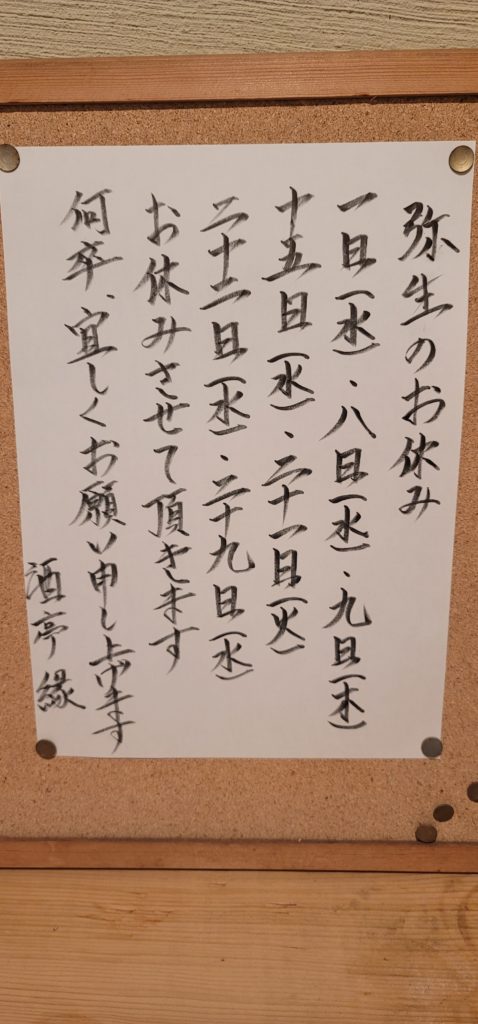 弥生のお休み
一日(水)・八日(水)・九日(木)
十五日(水)・二十一日(火)
二十二日(水)・二十九日(水)
お休みさせて頂きます
何卒、宜しくお願い申し上げます
酒亭縁